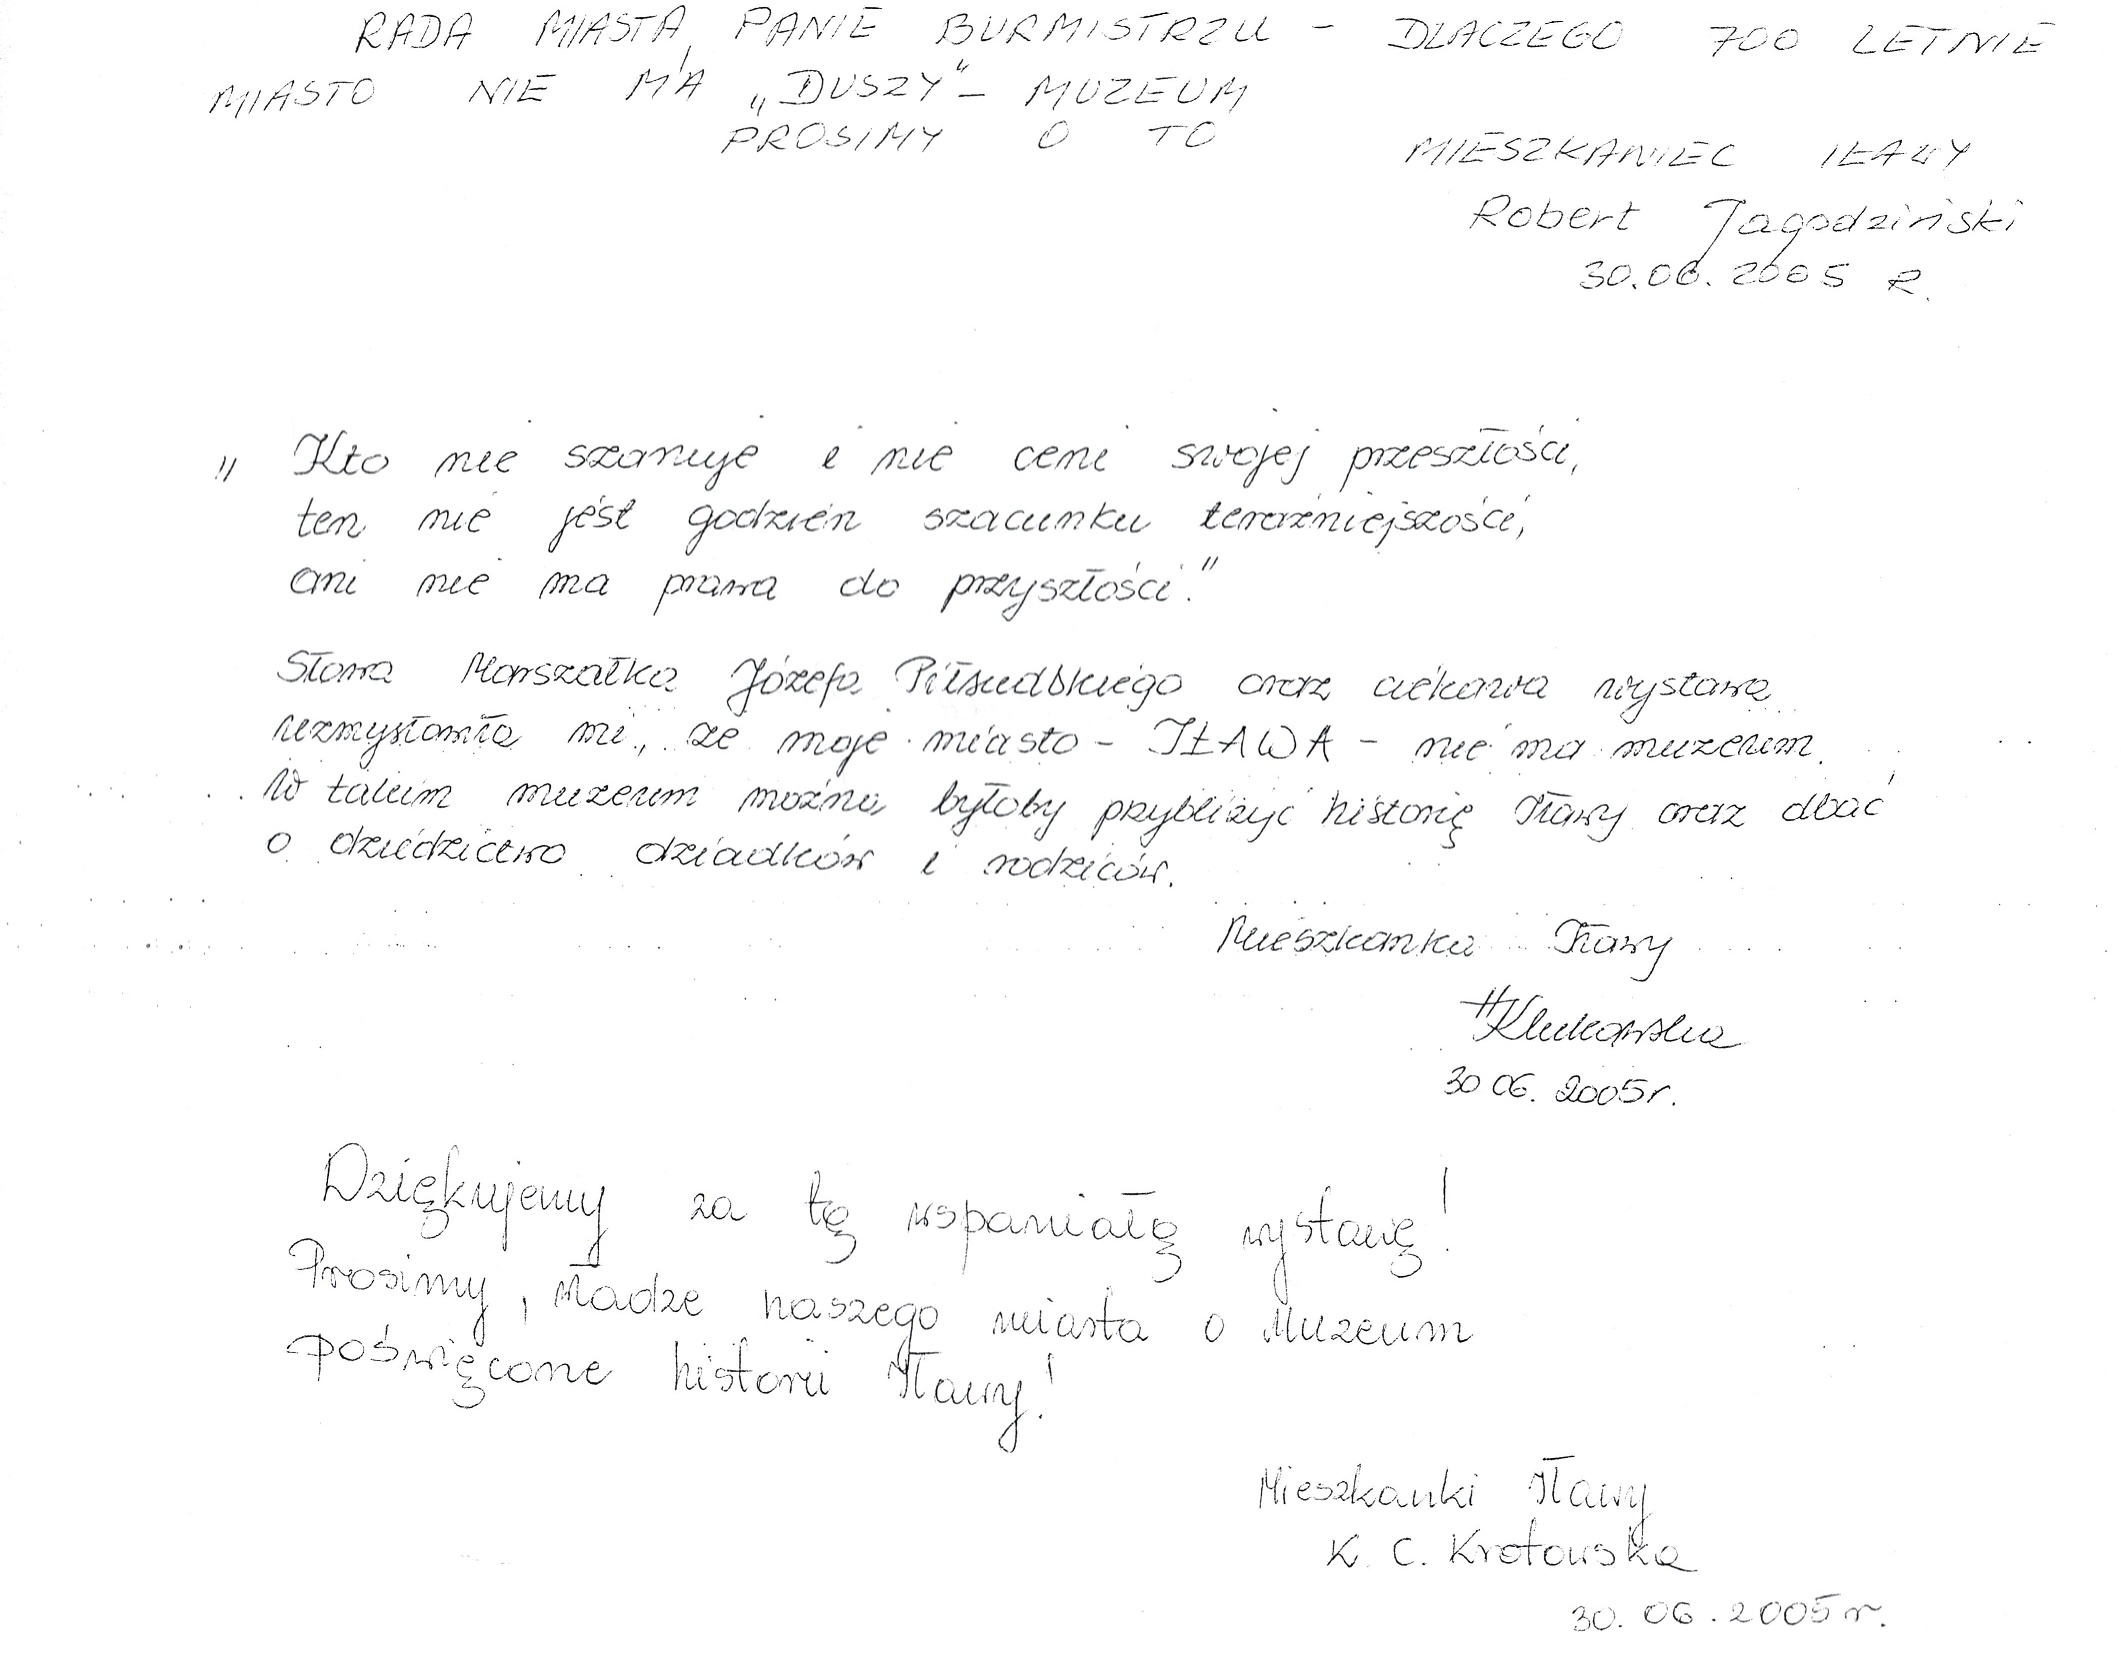 RADA MIASTA, PANIE BURMISTRZU - DLACZEGO 700 LETNIE
MIASTO NIE MA „DUSZY" - MUZEUM
PROSIMY O TO
MIESZKANIEC IŁAWY
Robert Jagodziński
30.06.2005 R.
„Kto nie szanuje i nie ceni swojej przeszłości,
ten nie jest godzien szacunku teraźniejszości,
ani nie ma prawa do przyszłości."
Słowa Marszałka Józefa Piłsudskiego oraz ciekawa wystawa
uzmysłowiła mi, że moje miasto - IŁAWA - nie ma muzeum.
W takim muzeum można byłoby przybliżyć historię Iławy oraz dbać
o dziedzictwo dziadków i rodziców.
Mieszkanka Iławy
Klukowska
30 06. 2005r.
Dziękujemy za tę wspaniałą wystawę!
Prosimy, władze naszego miasta o Muzeum
poświęcone historii Iławy!
Mieszkanki Iławy
K. C. Krotowska
30. 06. 2005 r.